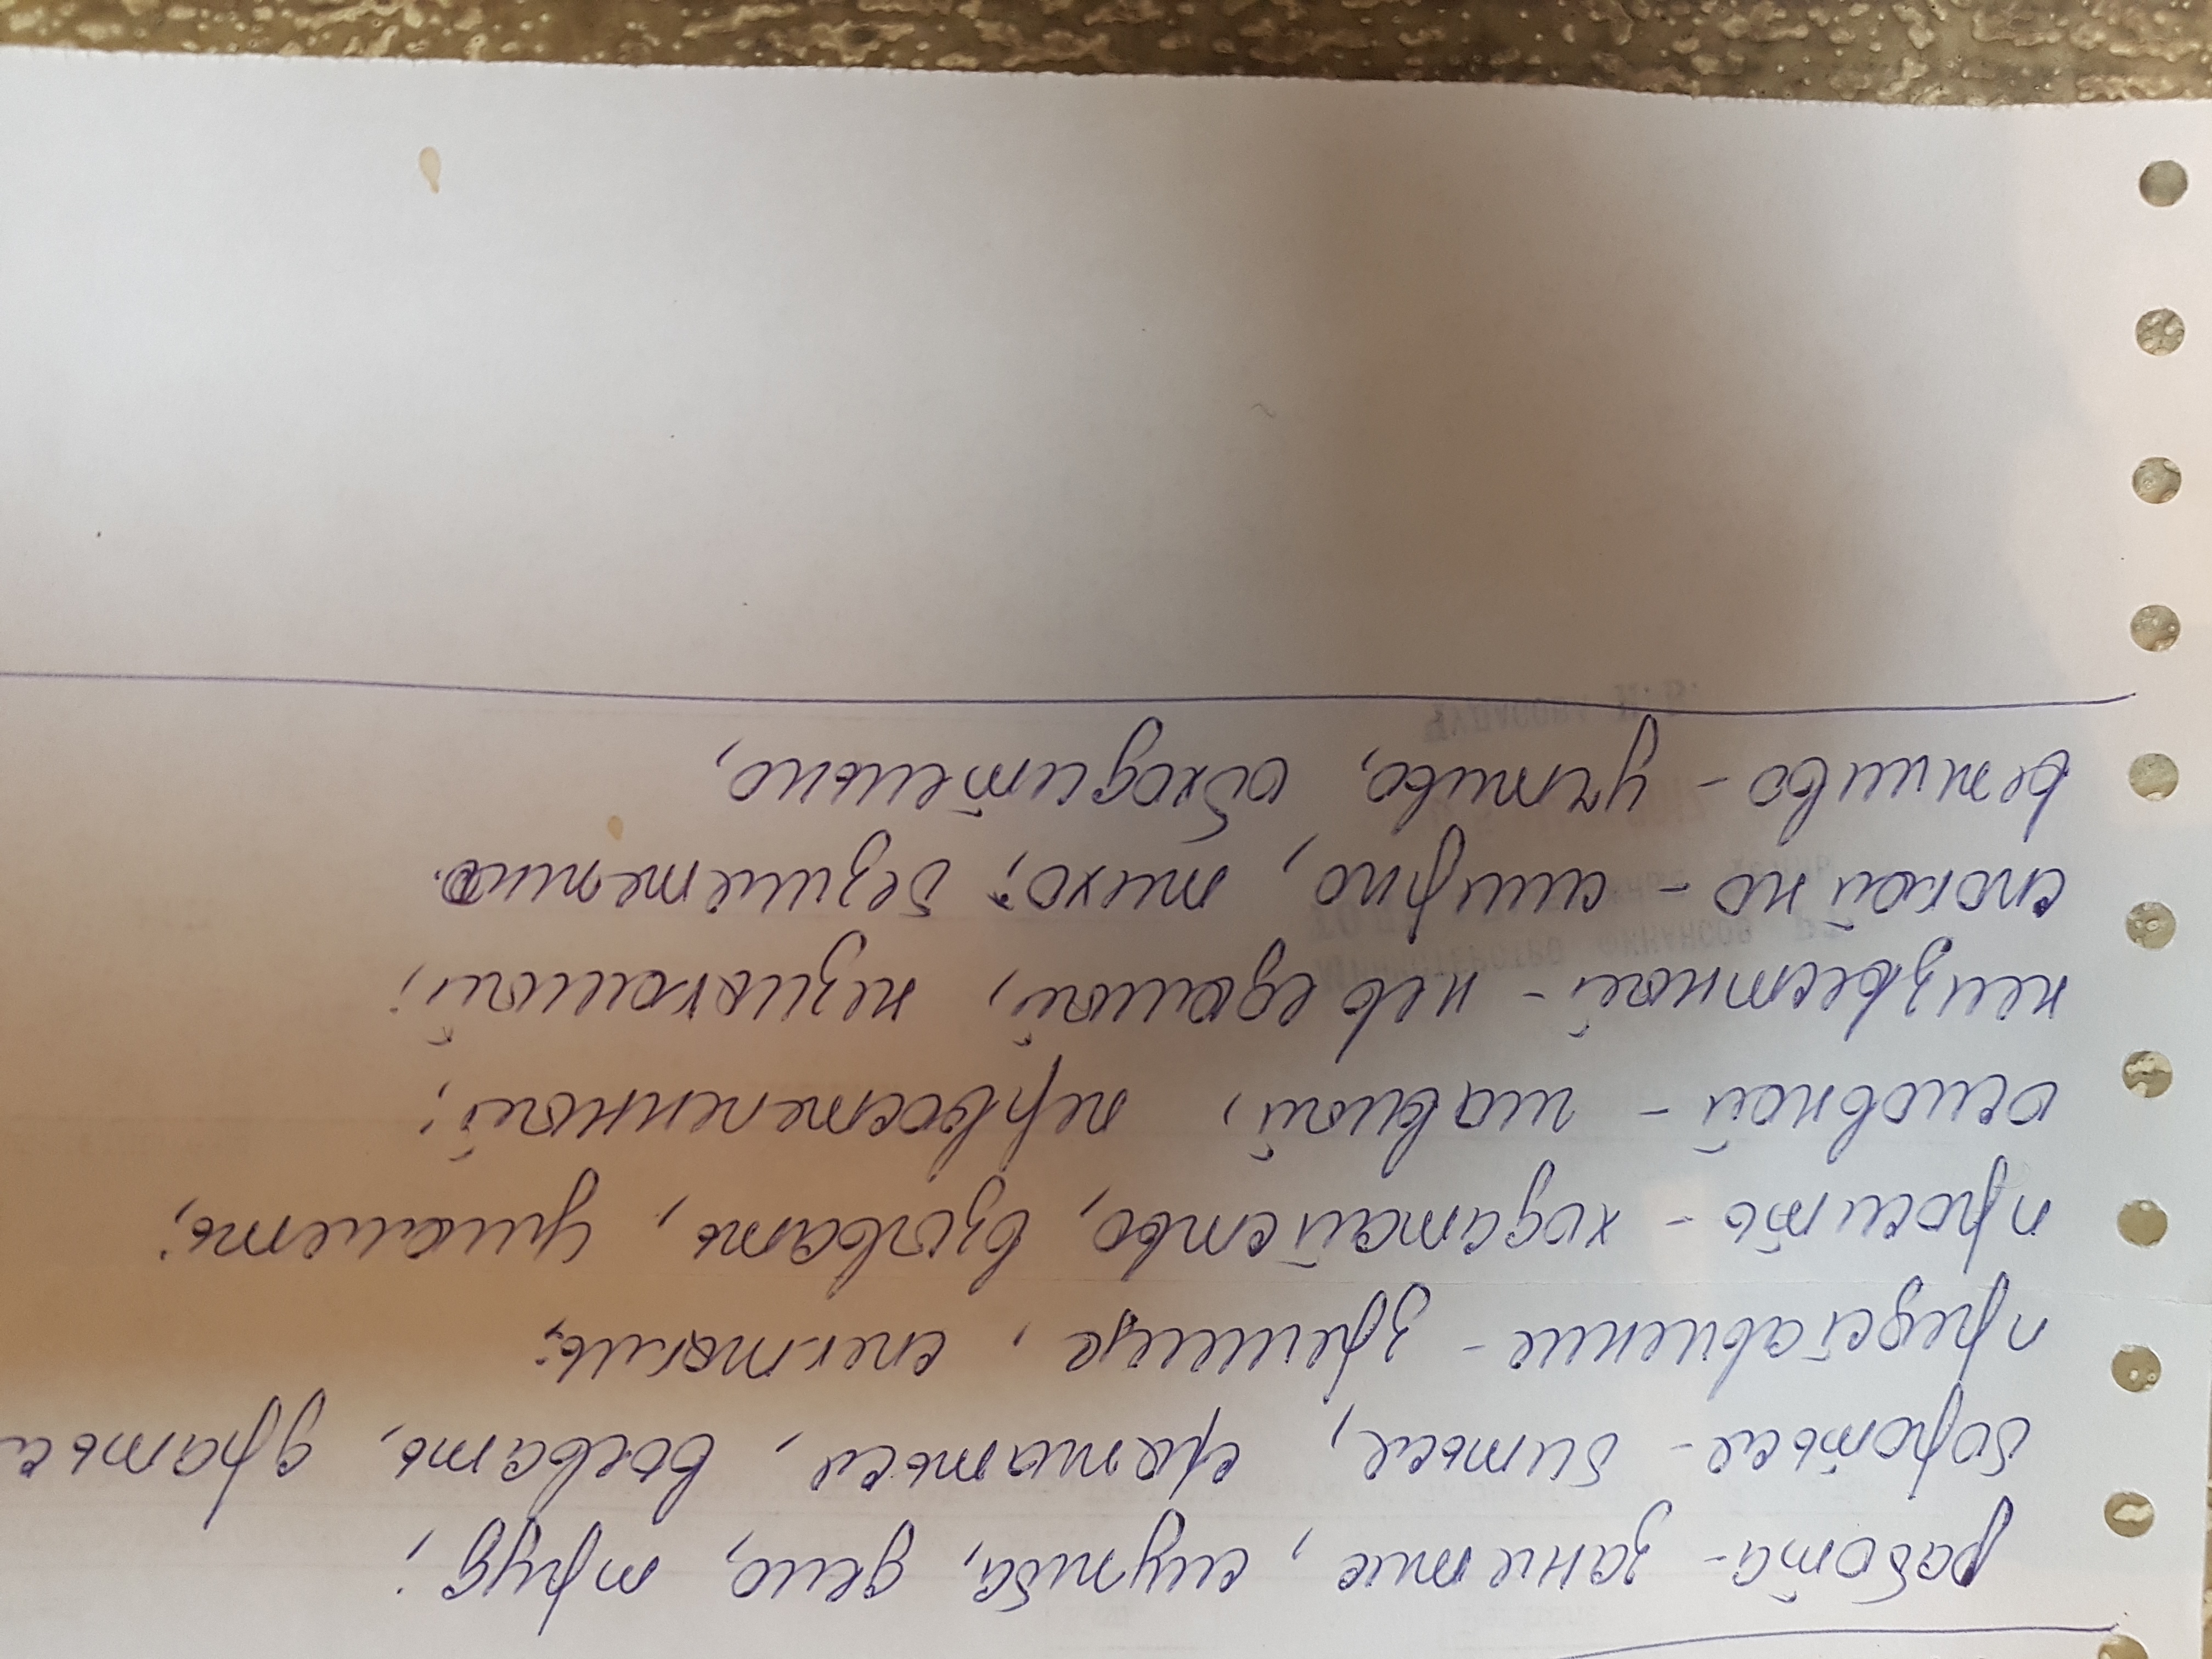 работа - занятие, служба, дело, труд;
бороться - биться, сражаться, воевать, драться
представление - зрелище, спектакль;
просить - ходатайство, взывать, умолять;
основной - главный, первостепенный;
неизвестный - неведомый, незнакомый;
спокойно - смирно, тихо, безмятежно.
вежливо - учтиво, обходительно,